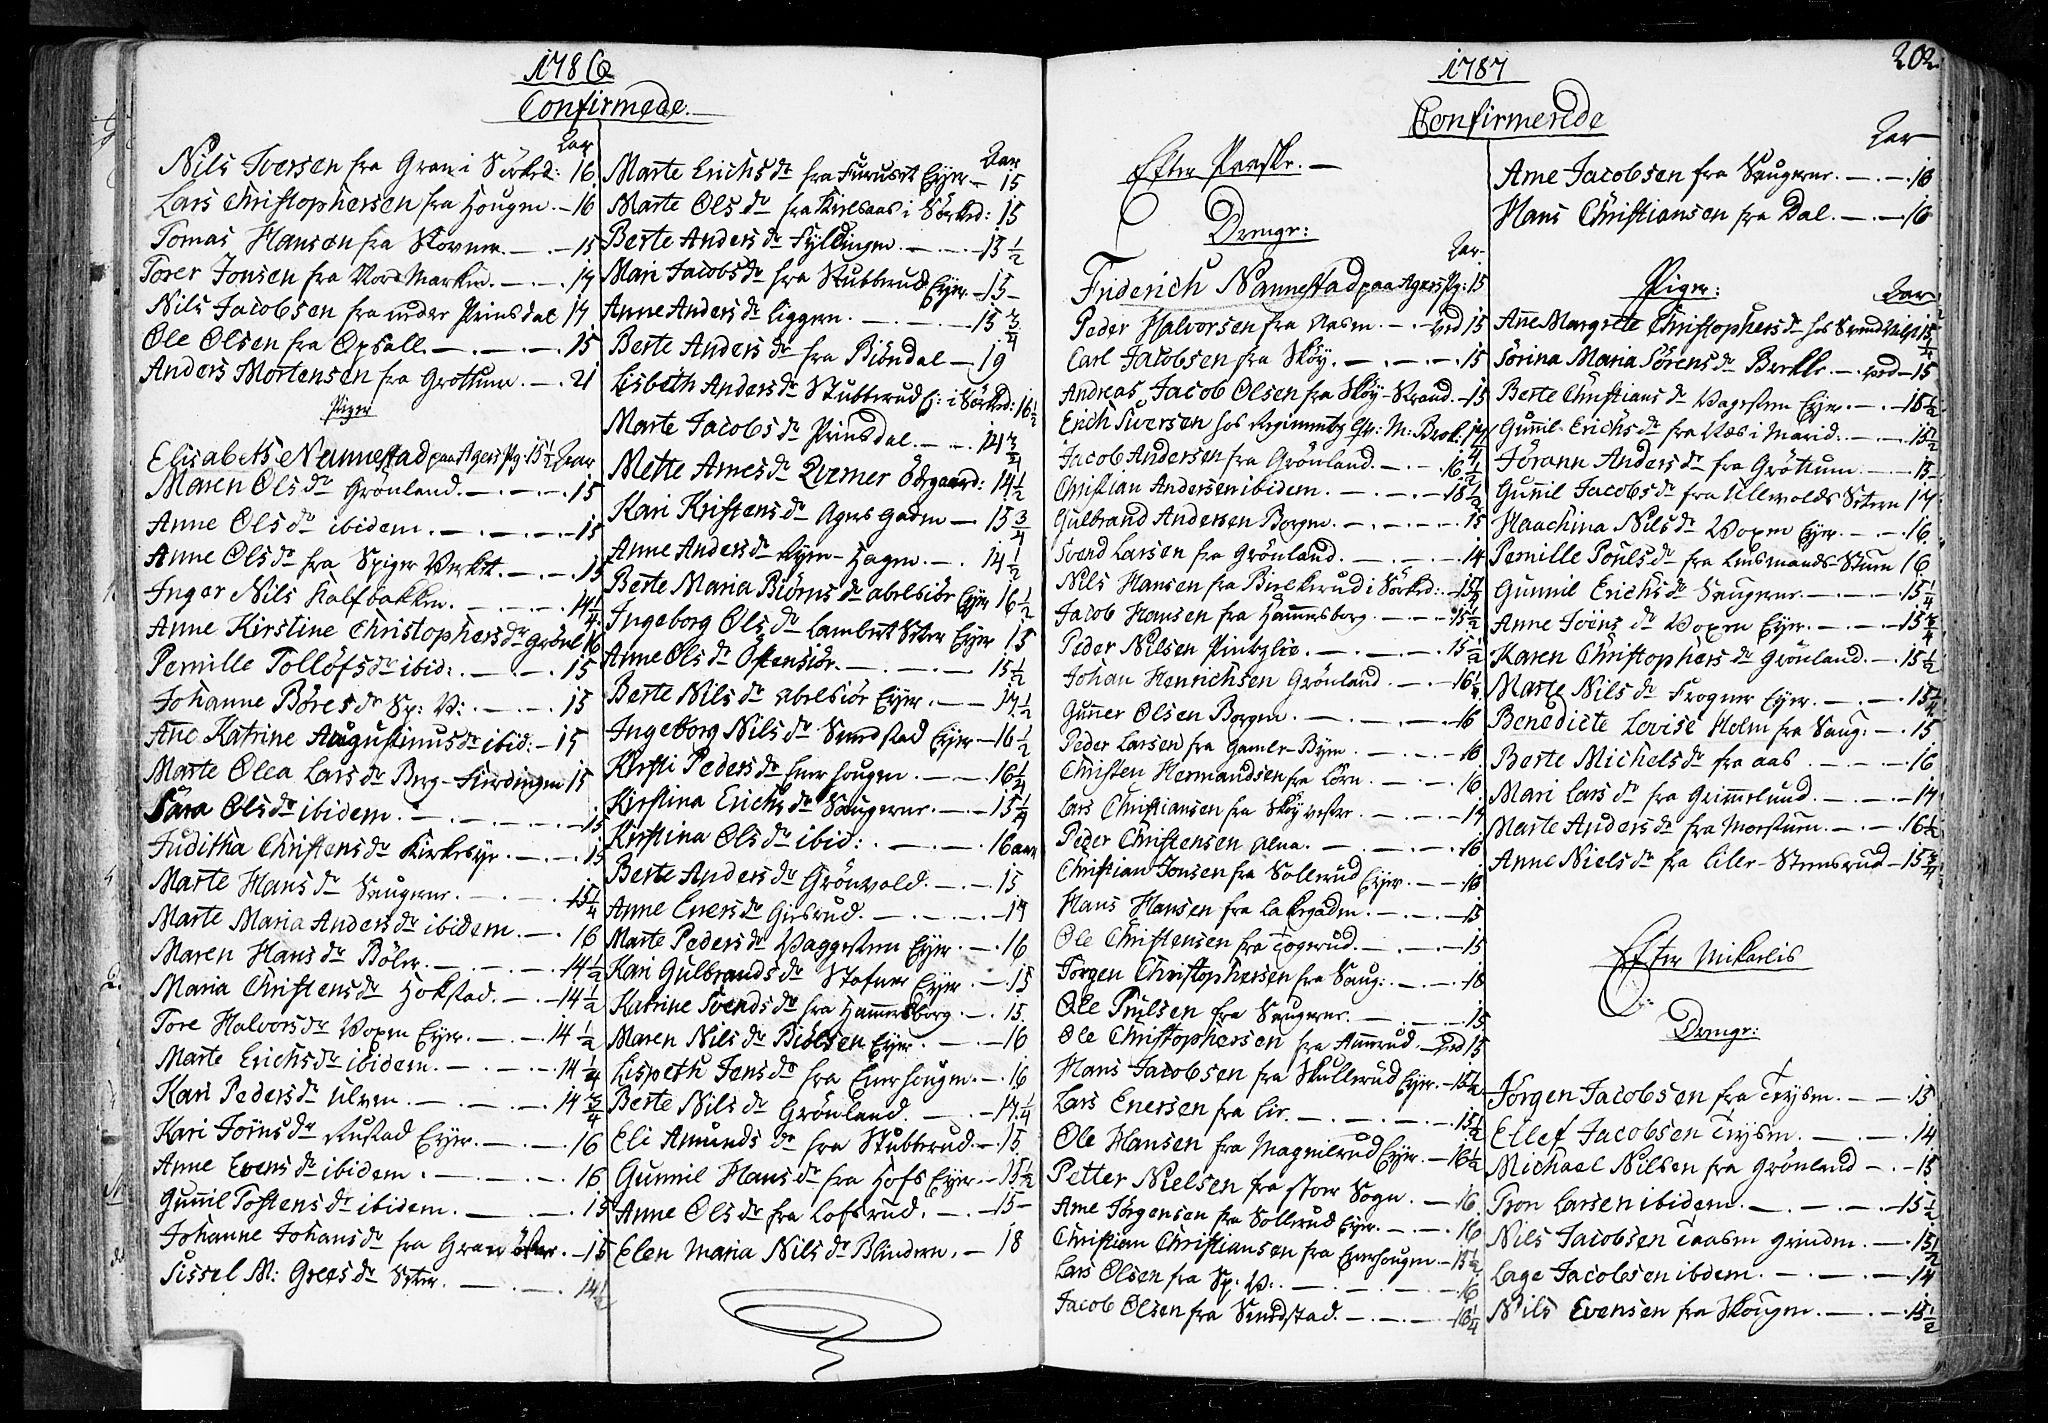 1786
Confirmede.
Aar
Nils Iversen fra Gran i Sörked: 16
Lars Christophersen fra Hougen. - 16
Tomas Hansen fra Stovner - 15
Torer Jonsen fra Nordmarken. - 17
Nils Jacobsen fra under Prinsdal 17
Ole Olsen fra Opsall. - 15
Anders Mortensen fra Grottum. - 21
Piger
Elisabeth Nannestad paa Agers Pg: 15 1/2 Aar
Maren Ols dr Grönland. - 15
Anne Ols dr ibidem - 15
Anne Ols dr fra Spiger Verket. - 15
Inger Nils Kalfbakken. - 14 1/4
Anne Kirstine Christophers dr Grönl 16
Pernille Tollöfs dr ibid: - 15
Johanne Böres dr Sp: V: - 15
Ane Katrine Augustinus dr ibid: - 15
Marte Olea Lars dr Berg-Fierdingen 15
Sara Ols dr ibidem. - 15
Juditha Christens dr Kirkebye. - 15
Marte Hans dr Saugerne. - 15 1/4
Marte Maria Anders dr ibidem. - 16
Maren Hans dr Böler. - 14 1/2
Maria Christens dr Hokstad. - 14 1/2
Tore Halvors dr Voxen Eyer. - 14 1/2
Marte Erichs dr ibidem. - 14 1/4
Kari Peders dr Ulven. - 14 3/4
Kari Jörns dr Rustad Eyer. - 16
Anne Evens dr ibidem. - 16
Gunil Tostens dr ibidem. - 15
Johanne Johans dr fra Gran öster. - 15
Sissel M: Grees dr Seter. - 14 1/2
Aar
Marte Erichs dr fra Furuset Eyer - 15
Marte Ols dr fra Kirlsaas i Sörked: 15
Berte Anders dr Fyldingen. - 15 1/2
Mari Jacobs dr fra Stubberud Eyer - 15 -
Anne Anders dr Liggern. - 15 3/4
Berte Anders dr fra Biöndal - 19
Lisbeth Anders dr Stubberud E: i Sörked: 16 1/2
Marte Jacobs dr Prinsdal. - 14 3/4
Mette Arnes dr Qverner Ödegaard: 14 1/2
Kari Kristens dr Agers Gaden - 15 3/4
Anne Anders dr Ryen-Hagen. - 14 1/2
Berte Maria Biörns dr Abelsiör Eyer 16 1/2
Ingeborg Ols dr Lambert Seter Eyer 15
Anne Ols dr Östensiör. - 15 1/2
Berte Nils dr Abelsiör Eyer. - 17
Ingeborg Nils dr Sundstad Eyer - 16 1/2
Kirsti Peders dr Enerhougen. - 16 1/4
Kirstina Erichs dr Saugerne. - 15 1/4
Kirstina Ols dr ibid: - 16 aar
Berte Anders dr Grönvold. - 15
Anne Eners dr Giesrud. - 17
Marte Peders dr Vaggesteen Eyer. - 16
Kari Gulbrands dr Stofner Eyer. - 15
Katrine Svends dr fra Hammersborg. - 15.
Maren Nils dr Biölsen Eyer. - 16
Lispeth Jens dr fra Enerhougen. - 16
Berte Nils dr Grönland. - 17 1/4
Eli Amunds dr fra Stubberud. - 15
Gunnil Hans dr fra Hofs Eyer. - 15 1/2
Anne Ols dr fra Lofsrud. - 15 -
Elen Maria Nils dr Blindern. - 18
202.
1787
Confirmerede
Efter Paaske. -
Drenge:
Aar.
Friderich Nannestad paa Agers Pg: 15
Peder Halvorsen fra Aasen. - ved 15
Carl Jacobsen fra Sköy. - 15
Andreas Jacob Olsen fra Sköy-Strand. - 15
Erich Siversen hos Regiments Qr: M: Brok: 17
Jacob Andersen fra Grönland. - 16 1/2
Christian Andersen ibidem. - 18 1/2
Gulbrand Andersen Borgen. - 15
Svend Larsen fra Grönland. - 14
Nils Hansen fra Birkerud i Sörked: - 15 1/2
Jacob Hansen fra Hammersborg. - 15 1/2
Peder Nilsen - 15 1/2
Johan Henrichsen Grönland. - 16 1/4
Gunner Olsen Borgen. - 16
Peder Larsen fra Gamle-Byen. - 16
Christen Hermandsen fra Lörn. - 16
Lars Christiansen fra Sköy vestre. - 17
Peder Christensen Alna. - 16
Christian Jonsen fra Sollerud Eyer. - 16
Hans Hansen fra Lakegaden. - 15
Ole Christensen fra Togerud. - 15
Jörgen Christophersen fra Saug: - 18
Ole Poulsen fra Saugerne. - 15
Ole Christophersen fra Ammrud. - ved 15
Hans Jacobsen fra Skullerud Eyer. - 15 1/2
Lars Enersen fra Lir. - 15 1/2
Ole Hansen fra Magnilrud Eyer. - 16 1/2
Petter Nielsen fra store Sogn. - 16.
Arne Jörgensen fra Sollerud Eyer. - 16
Christian Christiansen fra Enerhougen - 15 1/2
Lars Olsen fra Sp: V: - 16
Jacob Olsen fra Sundstad. - 16 1/4
Aar
Arne Jacobsen fra Saugerne. - 16
Hans Christiansen fra Dal. - 16
Piger:
Aar
Anne Margrete Christophers dr hos Svend Valgis 15 1/4
Sörina Maria Sörens dr Berkle. - ved - 15
Berte Christians dr Vagesteen Eyer. - 15 1/2
Gunnil Erichs dr fra Næs i Marid: - 15 1/2
Jörann Anders dr fra Gröttum. - 15 -
Gunil Jacobs dr fra Ullevolds Setern 17
Haachina Nils dr Voxen Eyer. - 16.
Pernille Pouls dr fra Lusmands-Stuen 16
Gunnil Erichs dr Saugerne. - 15 1/4
Anne Jöens dr Voxen Eyer. - 15 3/4
Karen Christophers dr Grönland. - 15 1/2
Marte Nils dr Frogner Eyer. - 15 1/4
Benedicte Lovise Holm fra Saug: - 15
Berte Michels dr fra Aas. - 16
Mari Lars dr fra Grimmelund. - 17
Marte Anders dr fra Morstuen. - 16 1/2
Anne Niels dr fra Liler-Stensrud - 15 3/4
Efter Mikaelis
Drenge:
Jörgen Jacobsen fra Trysen. - 15
Ellef Jacobsen Trysen. - 14
Michael Nilsen fra Grönland - 15
Tron Larsen ibidem. - 15 1/2
Nils Jacobsen Taasen Grinden. - 15 1/2
Lage Jacobsen ibdem. - 14
Nils Evensen fra Skougen. - 15 1/2